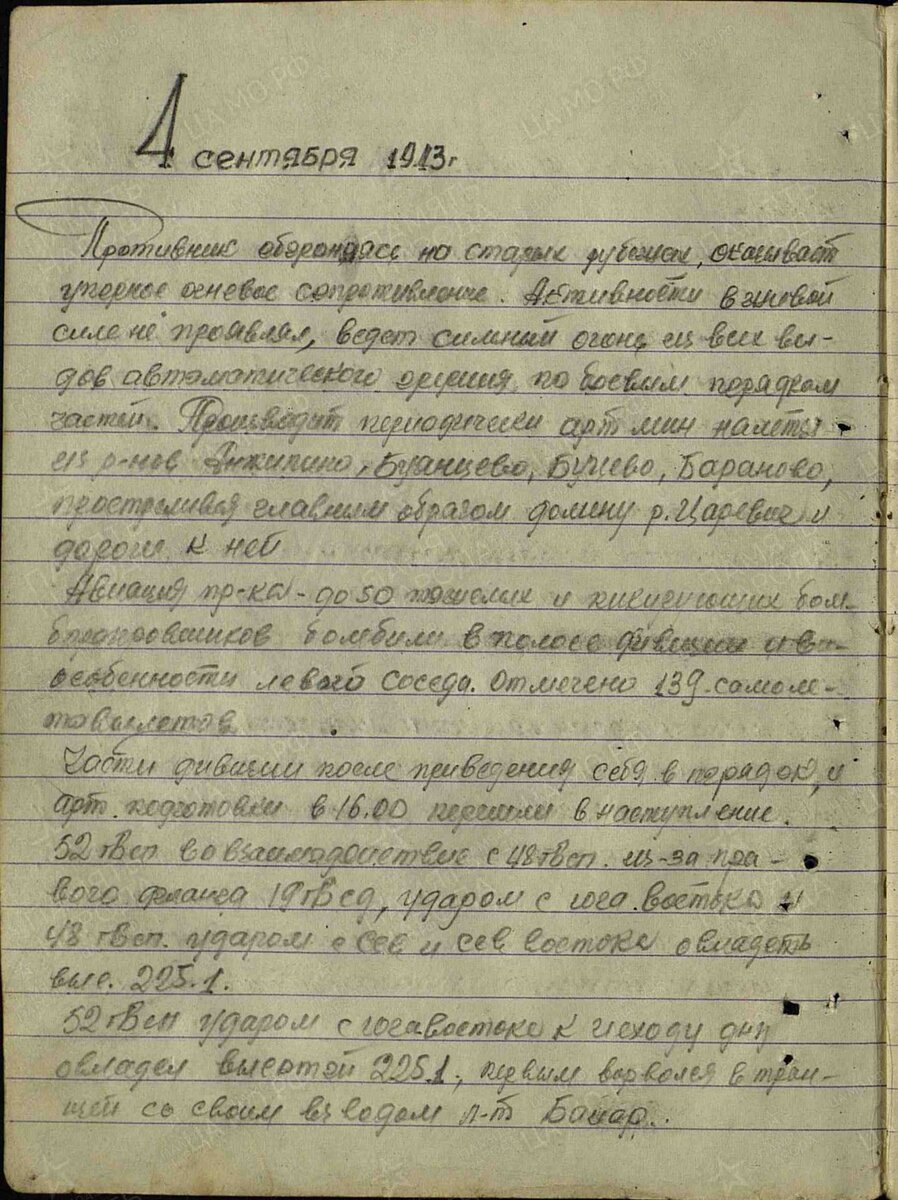 4 сентября 1943г
Противник обороняясь на старых рубежах, оказывает
упорное огневое сопротивление. Активности в живой
силе не проявлял, ведет сильный огонь из всех ви-
дов автоматического оружия, по боевым порядкам
частей. Производит периодически арт мин налеты
из р-нов Буянцево, Бунево, Бараново,
простреливая главным образом долину р. Царевич и
дороги к ней
Авиация пр-ка - до 50 тяжелых и пикирующих бом-
бардировщиков бомбили в полосе дивизии и в-
особенности левого соседа. Отмечено 139 самоле-
товылетов
Части дивизии после приведения себя в порядок, и
арт. подготовки в 16.00 перешли в наступление.
52 гвсп во взаимодействие с 48 гвсп. из-за пра-
вого фланга 19 гвсд, ударом с юга. востока и
48 гвсп. ударом с сев и сев востока овладеть
выс. 225.1.
52 гвсп ударом с юга востока к исходу дня
овладел высотой 225.1, первым ворвался в тран-
шеи со своим взводом л-т